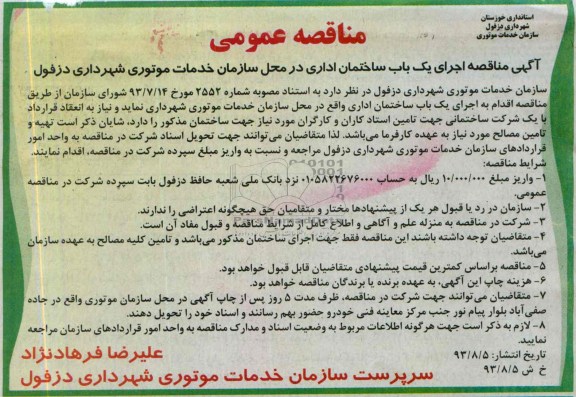 استانداری خوزستان
شهرداری دزفول
سازمان خدمات موتوری
مناقصه عمومی
آگهی مناقصه اجرای یک باب ساختمان اداری در محل سازمان خدمات موتوری شهرداری دزفول
سازمان خدمات موتوری شهرداری دزفول در نظر دارد به استناد مصوبه شماره ۲۵۵۲ مورخ ۹۳/۷/۱۴ شورای سازمان از طریق
مناقصه اقدام به اجرای یک باب ساختمان اداری واقع در محل سازمان خدمات موتوری شهرداری نماید و نیاز به انعقاد قرارداد
با یک شرکت ساختمانی جهت تامین استاد کاران و کارگران مورد نیاز جهت ساختمان مذکور را دارد، شایان ذکر است تهیه و
تامین مصالح مورد نیاز به عهده کارفرما می‌باشد. لذا متقاضیان می‌توانند جهت تحویل اسناد شرکت در مناقصه به واحد امور
قراردادهای سازمان خدمات موتوری شهرداری دزفول مراجعه و نسبت به واریز مبلغ سپرده شرکت در مناقصه، اقدام نمایند.
شرایط مناقصه:
۱- واریز مبلغ ۱۰/۰۰۰/۰۰۰ ریال به حساب ۰۱۰۵۸۲۲۶۷۶۰۰۰ نزد بانک ملی شعبه حافظ دزفول بابت سپرده شرکت در مناقصه
عمومی.
۲- سازمان در رد یا قبول هر یک از پیشنهادها مختار و متقامیان حق هیچگونه اعتراضی را ندارند.
۳- شرکت در مناقصه به منزله علم و آگاهی و اطلاع کامل از شرایط مناقصه و قبول مفاد آن است.
۴- متقاضیان توجه داشته باشند این مناقصه فقط جهت اجرای ساختمان مذکور می‌باشد و تامین کلیه مصالح به عهده سازمان
می‌باشد.
۵- مناقصه براساس کمترین قیمت پیشنهادی متقاضیان قابل قبول خواهد بود.
۶- هزینه چاپ این آگهی، به عهده برنده یا برندگان مناقصه خواهد بود.
۷- متقاضیان می‌توانند جهت شرکت در مناقصه، ظرف مدت ۵ روز پس از چاپ آگهی در محل سازمان موتوری واقع در جاده
صفی‌آباد بلوار پیام نور جنب مرکز معاینه فنی خودرو حضور بهم رسانند و اسناد خود را تحویل دهند.
۸- لازم به ذکر است جهت هرگونه اطلاعات مربوط به وضعیت اسناد و مدارک مناقصه به واحد امور قراردادهای سازمان مراجعه
نمایید.
تاریخ انتشار: ۹۳/۸/۵
خ ش ۹۳/۸/۵
علیرضا فرهادنژاد
سرپرست سازمان خدمات موتوری شهرداری دزفول